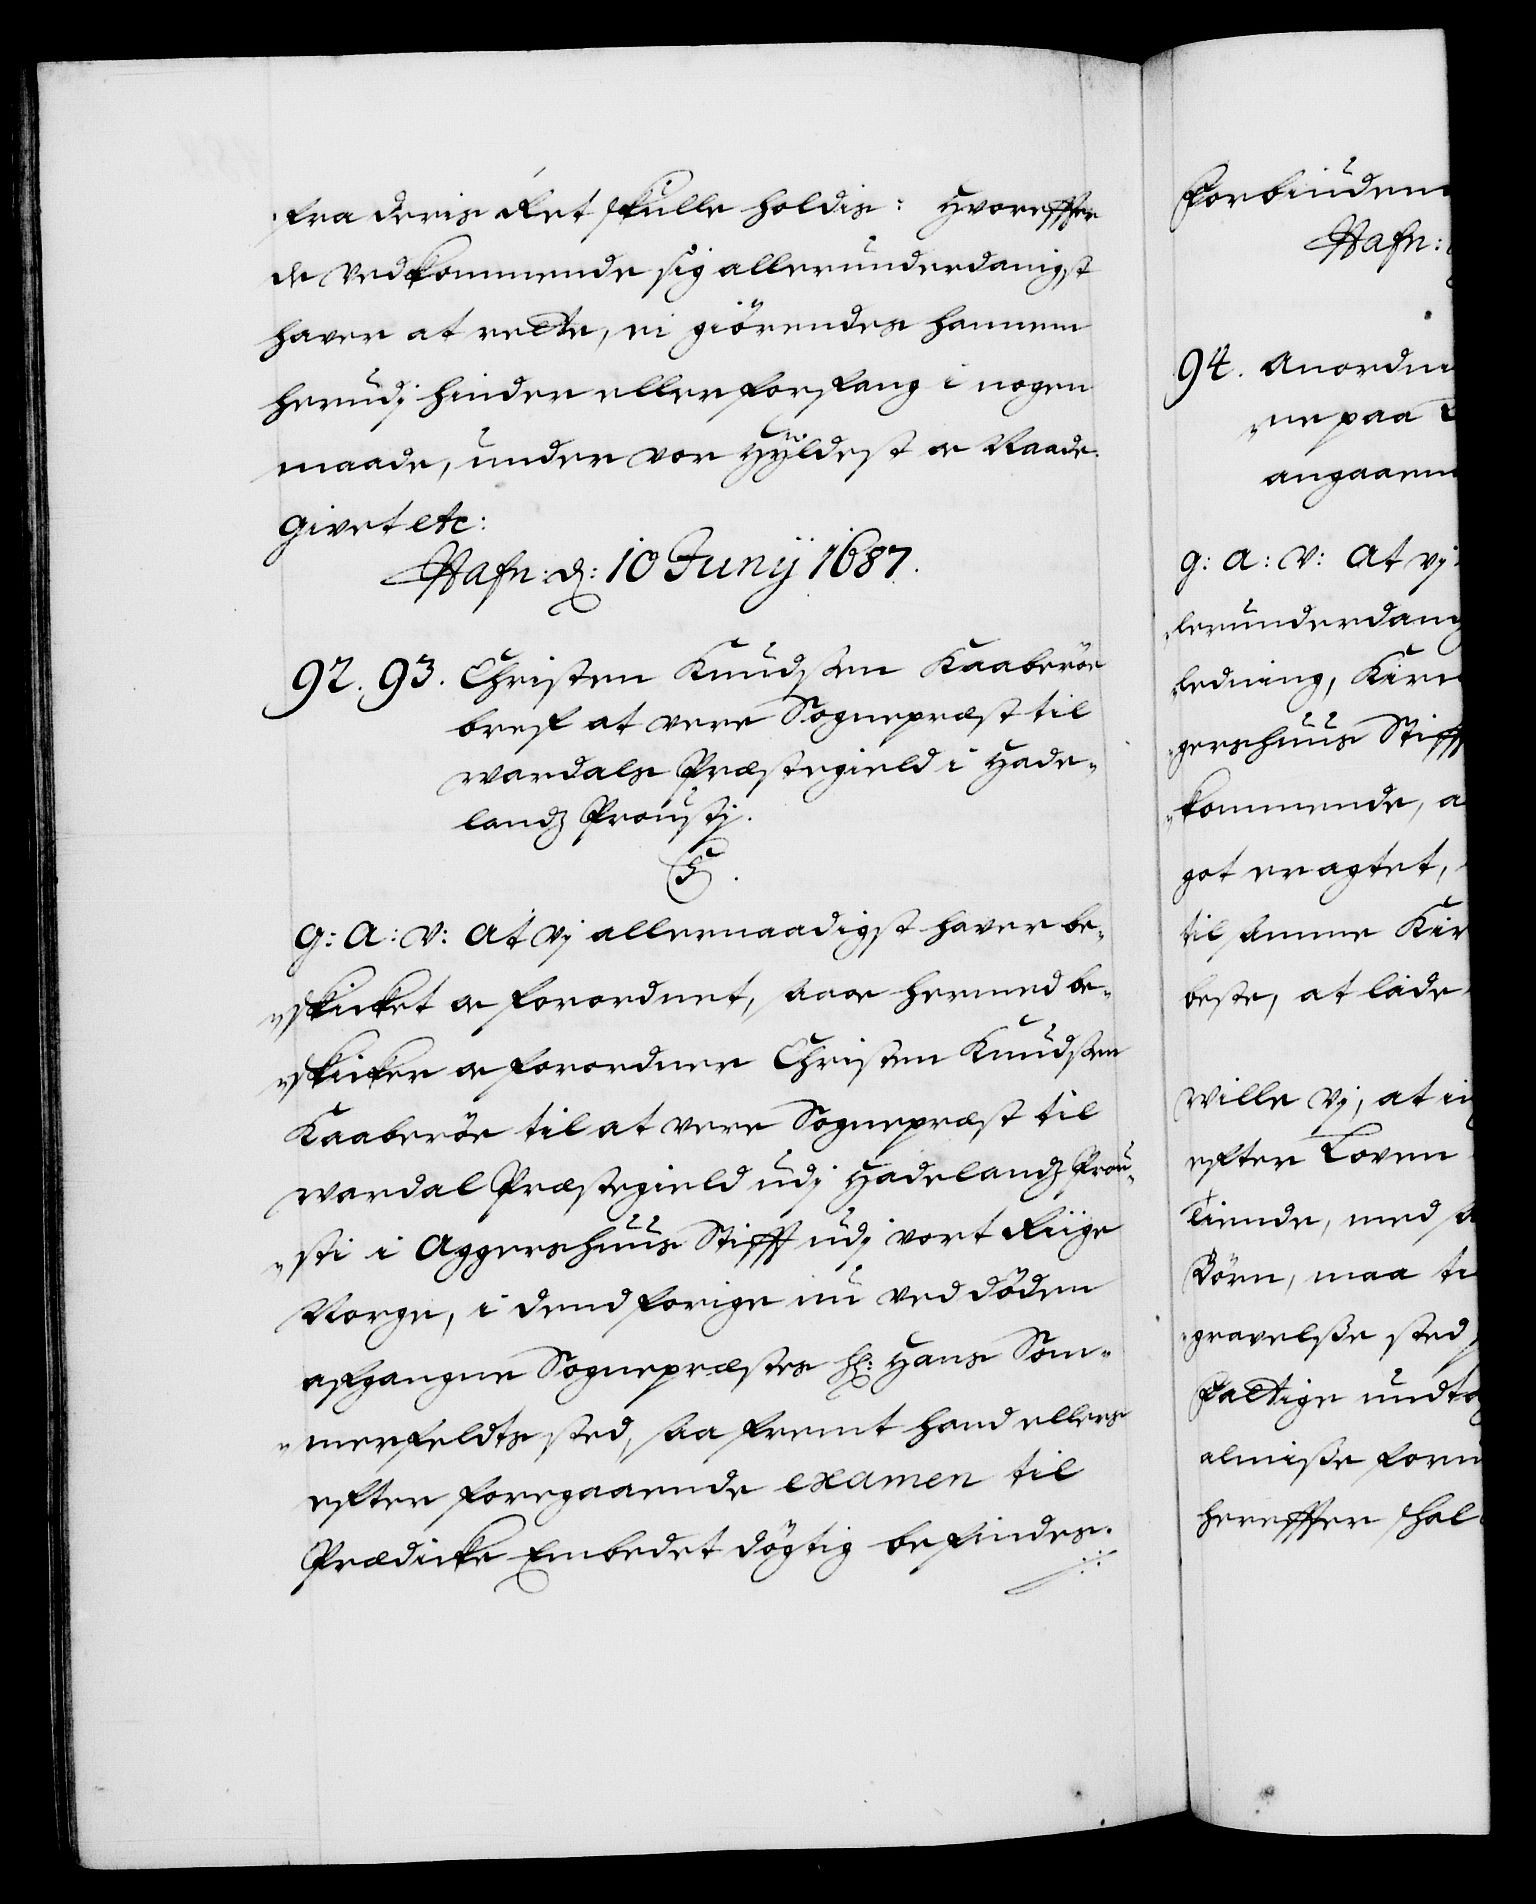 fra deris Ret skulle holdis: Hvorefter
de Vedkommende sig allerunderdanigst
haver at rette, ei giörendes hannem
herudj hinder eller forfang i nogen
maade, under vor Hyldest oc Naade.
Givet etc:
Hafn: d: 10 Junij 1687.
92. 93. Christen Knudssen Kaaberöe
bref at vere Sognepræst til
Wardals Præstegield i Hade-
landz Proustj.
G: A: V: At vj allernaadigst haver be-
skicket oc forordnet, saa oc hermed be-
skicker oc forordner Christen Knudssen
Kaaberöe til at vere Sognepræst til
Wardal Præstegield udj Hadelandz Prou-
sti i Aggershuus Stifft udj vort Riige
Norge, i dend forige nu ved döden
afgangne Sognepræstes Hr: Hans Som-
merfeldts sted, saa fremt hand ellers
efter foregaaende examen til
Prædicke Embedet dögtig befindes.
Forbiuden
Hafn:
94. Anordn
ne paa
angaaen
G: A: V: At vj
lerunderdanig
ledning, Kire
gershuus Stifft
kommende, a
got eragtet,
til samme Kir
beste, at lade
Wille vj, at in
efter Loven
Tiende, med
Börn, maa
gravelsse sted
Fattige undta
almisse form
herefter skal